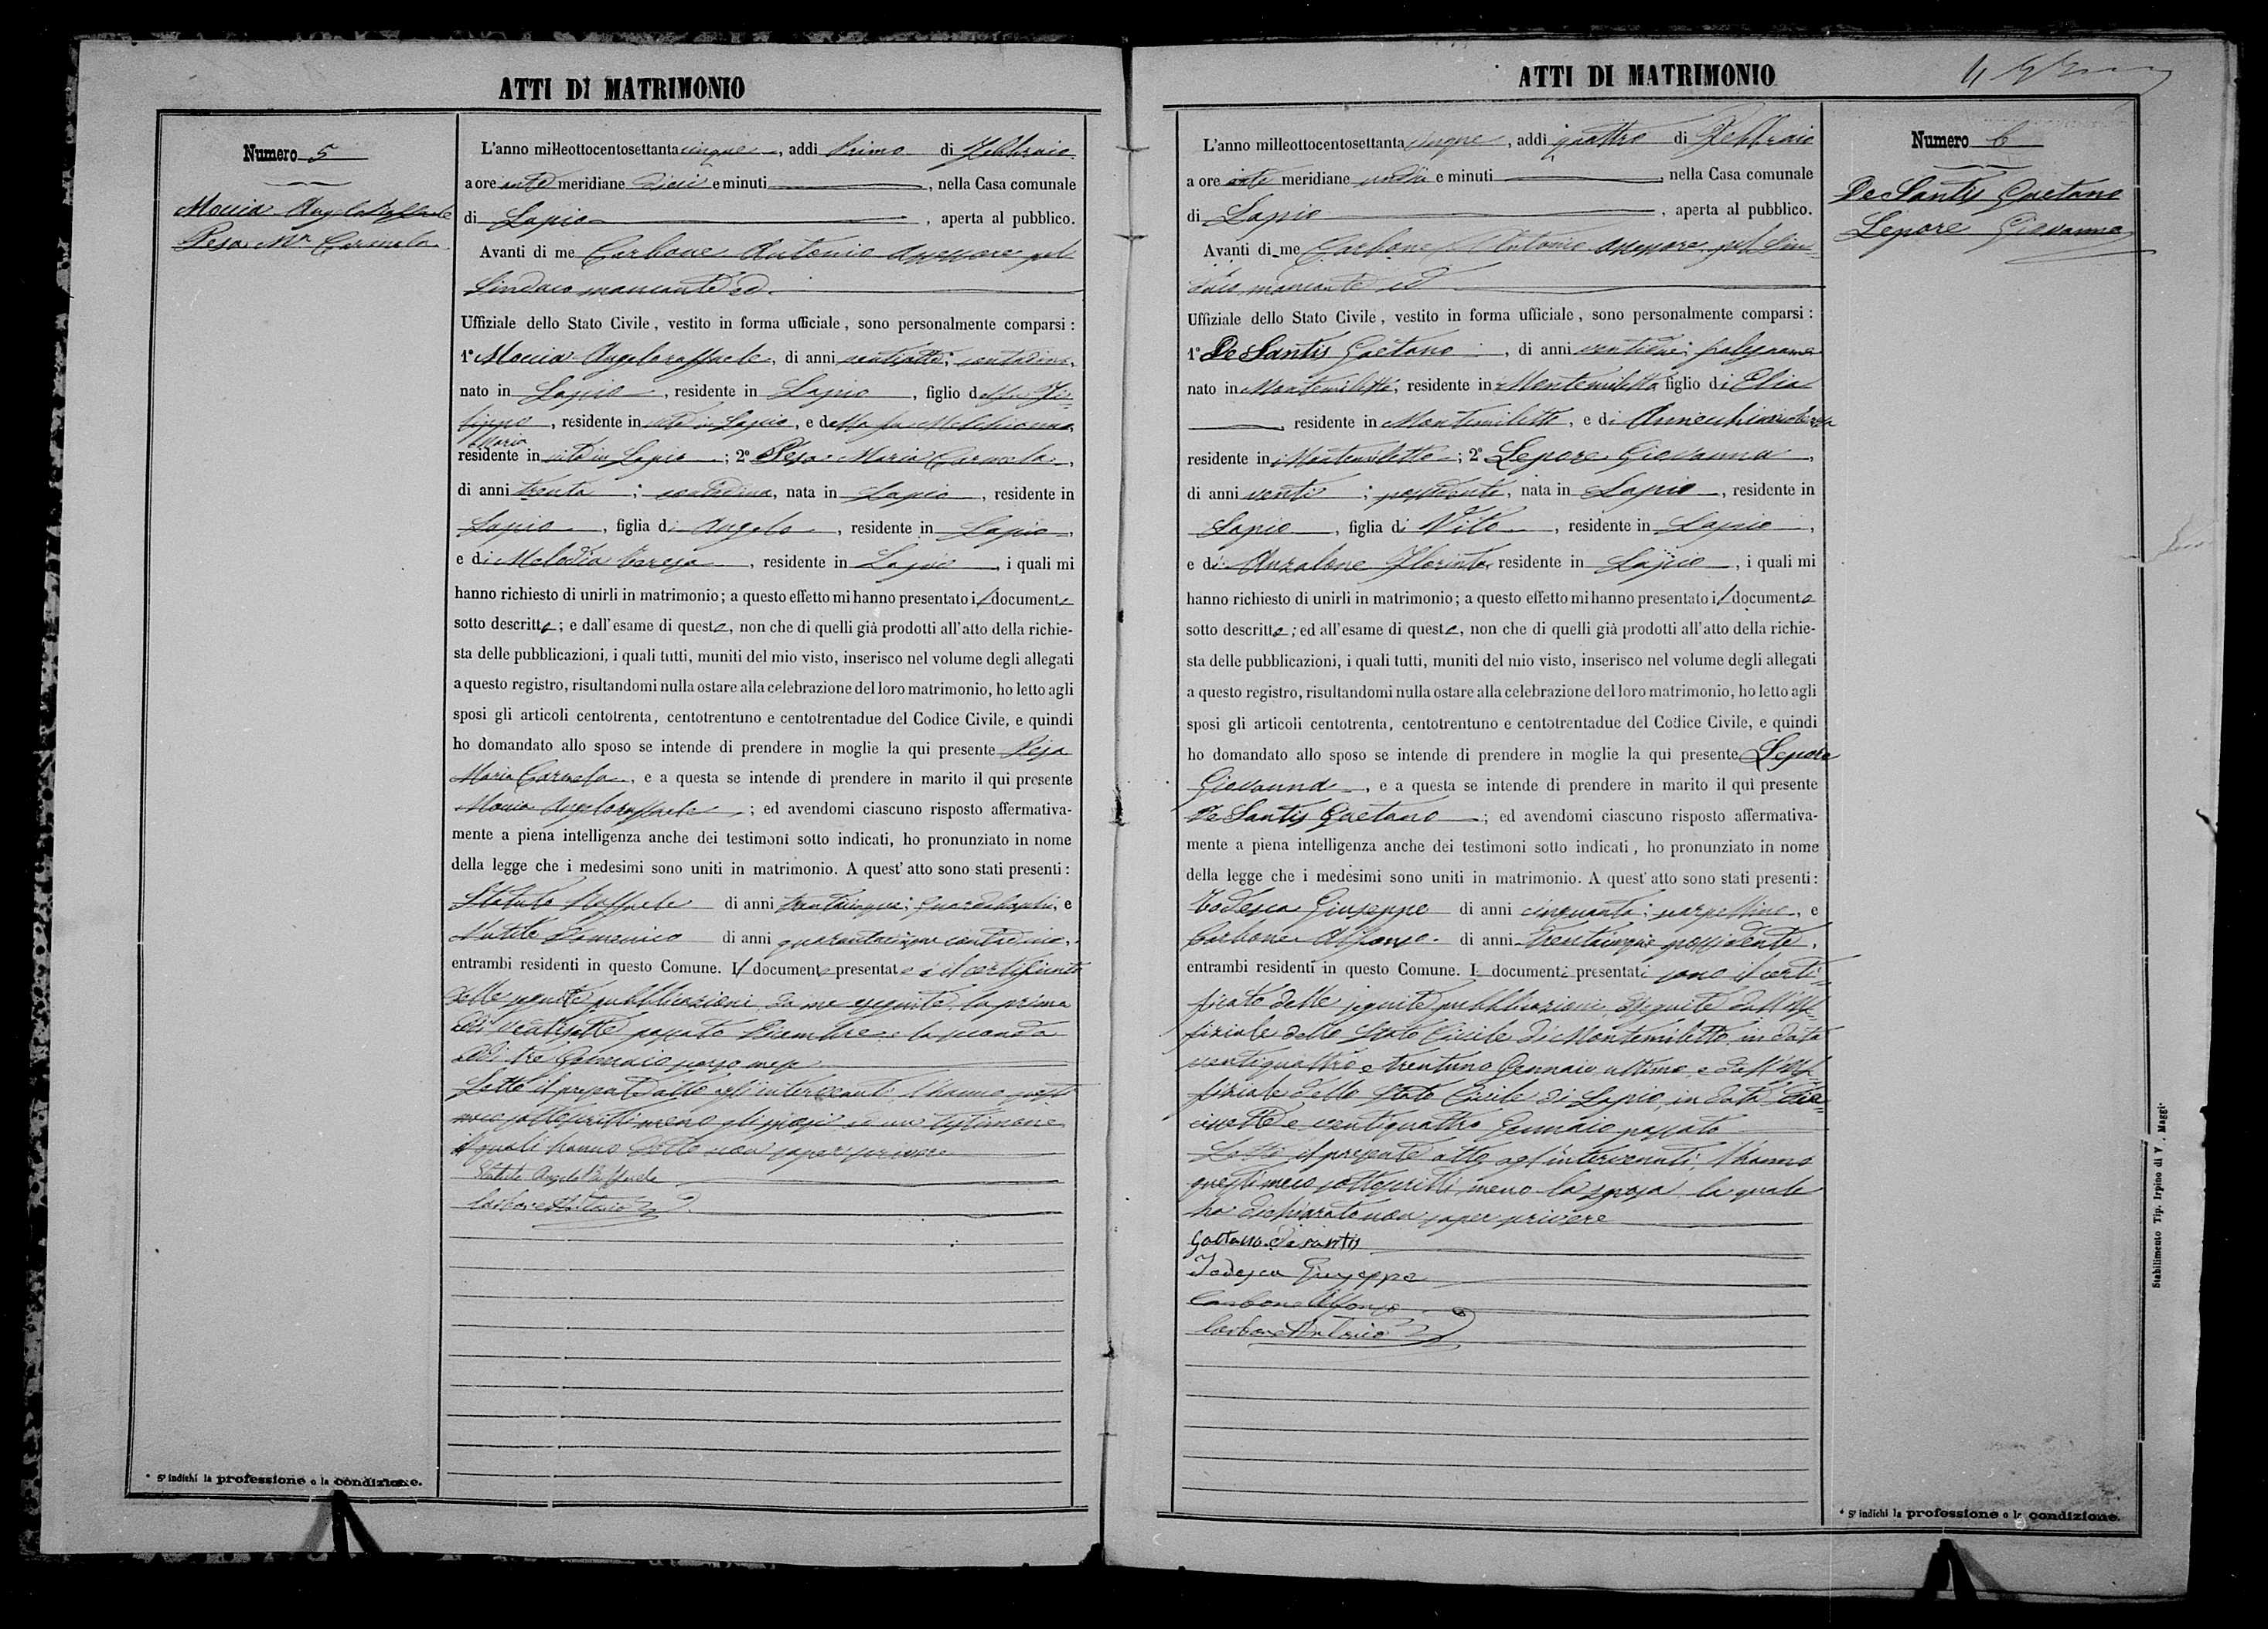 ATTI DI MATRIMONIO
Numero 5
Moccia Angelo Raffaele
Pesa Mª Carmela
L'anno milleottocentosettantacinque, addì Primo di Febbraio
a ore ante meridiane dieci e minuti, nella Casa comunale
di Lapio, aperta al pubblico.
Avanti di me Carbone Antonio assessore pel
Sindaco mancante ed
Uffiziale dello Stato Civile, vestito in forma ufficiale, sono personalmente comparsi:
1º Moccia Angeloraffaele, di anni contadino,
nato in Lapio, residente in Lapio, figlio del fu Fi-
lippo, residente in vita in Lapio, e della fu
Maria
residente in vita in Lapio; 2º Pesa Maria Carmela,
di anni trenta; contadina, nata in Lapio, residente in
Lapio, figlia di Angelo, residente in Lapio,
e di Melodia Teresa, residente in Lapio, i quali mi
hanno richiesto di unirli in matrimonio; a questo effetto mi hanno presentato il documento
sotto descritto; e dall'esame di questo, non che di quelli già prodotti all'atto della richie-
sta delle pubblicazioni, i quali tutti, muniti del mio visto, inserisco nel volume degli allegati
a questo registro, risultandomi nulla ostare alla celebrazione del loro matrimonio, ho letto agli
sposi gli articoli centotrenta, centotrentuno e centotrentadue del Codice Civile, e quindi
ho domandato allo sposo se intende di prendere in moglie la qui presente Pesa
Maria Carmela, e a questa se intende di prendere in marito il qui presente
Moccia Angeloraffaele; ed avendomi ciascuno risposto affermativa-
mente a piena intelligenza anche dei testimoni sotto indicati, ho pronunziato in nome
della legge che i medesimi sono uniti in matrimonio. A quest'atto sono stati presenti:
Statuto Raffaele di anni trentacinque; e
Domenico di anni quarantacinque contadino,
entrambi residenti in questo Comune. Il documento presentato è il certificato
delle seguite pubblicazioni da me eseguite la prima
addì ventisette passato Dicembre e la seconda
addì tre Gennaio scorso mese
Letto il presente atto agl'intervenuti, l'hanno questi
meco sottoscritti meno gli sposi ed un testimone
i quali hanno detto non saper scrivere
Statuto Angelo Raffaele
Carbone Antonio
* S' indichi la professione o la condizione.
ATTI DI MATRIMONIO
Numero 6
De Santis Gaetano
Lepore Giovanna
L'anno milleottocentosettantacinque, addì quattro di Febbraio
a ore ante meridiane undici e minuti, nella Casa comunale
di Lapio, aperta al pubblico.
Avanti di me Carbone Antonio assessore pel Sin-
daco mancante ed
Uffiziale dello Stato Civile, vestito in forma ufficiale, sono personalmente comparsi:
1º De Santis Gaetano, di anni falegname
nato in Montemiletto, residente in Montemiletto figlio di Elia
, residente in Montemiletto, e di
residente in Montemiletto; 2º Lepore Giovanna,
di anni venti; possidente, nata in Lapio, residente in
Lapio, figlia di Vito, residente in Lapio,
e di Anzalone Florinta, residente in Lapio, i quali mi
hanno richiesto di unirli in matrimonio; a questo effetto mi hanno presentato il documento
sotto descritto; ed all'esame di questo, non che di quelli già prodotti all'atto della richie-
sta delle pubblicazioni, i quali tutti, muniti del mio visto, inserisco nel volume degli allegati
a questo registro, risultandomi nulla ostare alla celebrazione del loro matrimonio, ho letto agli
sposi gli articoli centotrenta, centotrentuno e centotrentadue del Codice Civile, e quindi
ho domandato allo sposo se intende di prendere in moglie la qui presente Lepore
Giovanna, e a questa se intende di prendere in marito il qui presente
De Santis Gaetano; ed avendomi ciascuno risposto affermativa-
mente a piena intelligenza anche dei testimoni sotto indicati, ho pronunziato in nome
della legge che i medesimi sono uniti in matrimonio. A quest'atto sono stati presenti:
Todesca Giuseppe di anni cinquanta; scarpellino, e
Carbone Alfonso di anni trentacinque possidente,
entrambi residenti in questo Comune. I documenti presentati sono il certi-
ficato delle seguite pubblicazioni eseguite dall'Uf-
fiziale dello Stato Civile di Montemiletto in data
ventiquattro e trentuno Gennaio ultimo e dall'Uf-
fiziale dello Stato Civile di Lapio, in data dia-
cisette e ventiquattro Gennaio passato
Letto il presente atto agl'intervenuti, l'hanno
questi meco sottoscritti meno la sposa la quale
ha dichiarato non saper scrivere
Gaetano de santis
Todesca Giuseppe
Carbone Alfonso
Carbone Antonio
* S' indichi la professione o la condizione.
Stabilimento Tip. Irpino di V. Maggi.